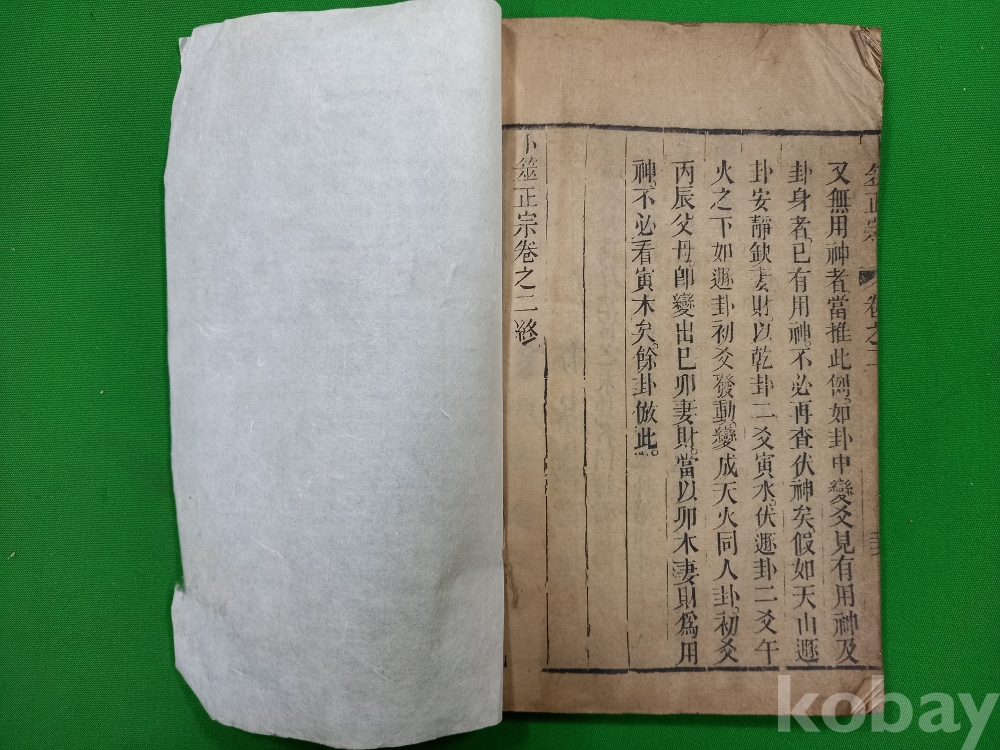 筮正宗 卷之二
又無用神者當推此例。如卦中變爻見有用神及
卦身者已有用神不必再查伏神矣。假如天山遯
卦安靜缺妻財以乾卦二爻寅水伏遯卦二爻午
火之下如遯卦初爻發動變成天火同人卦。初爻
丙辰父母卽變出巳卯妻財。當以卯木妻財爲用
神不必看寅木矣餘卦倣此。
卜筮正宗卷之二終
kobay